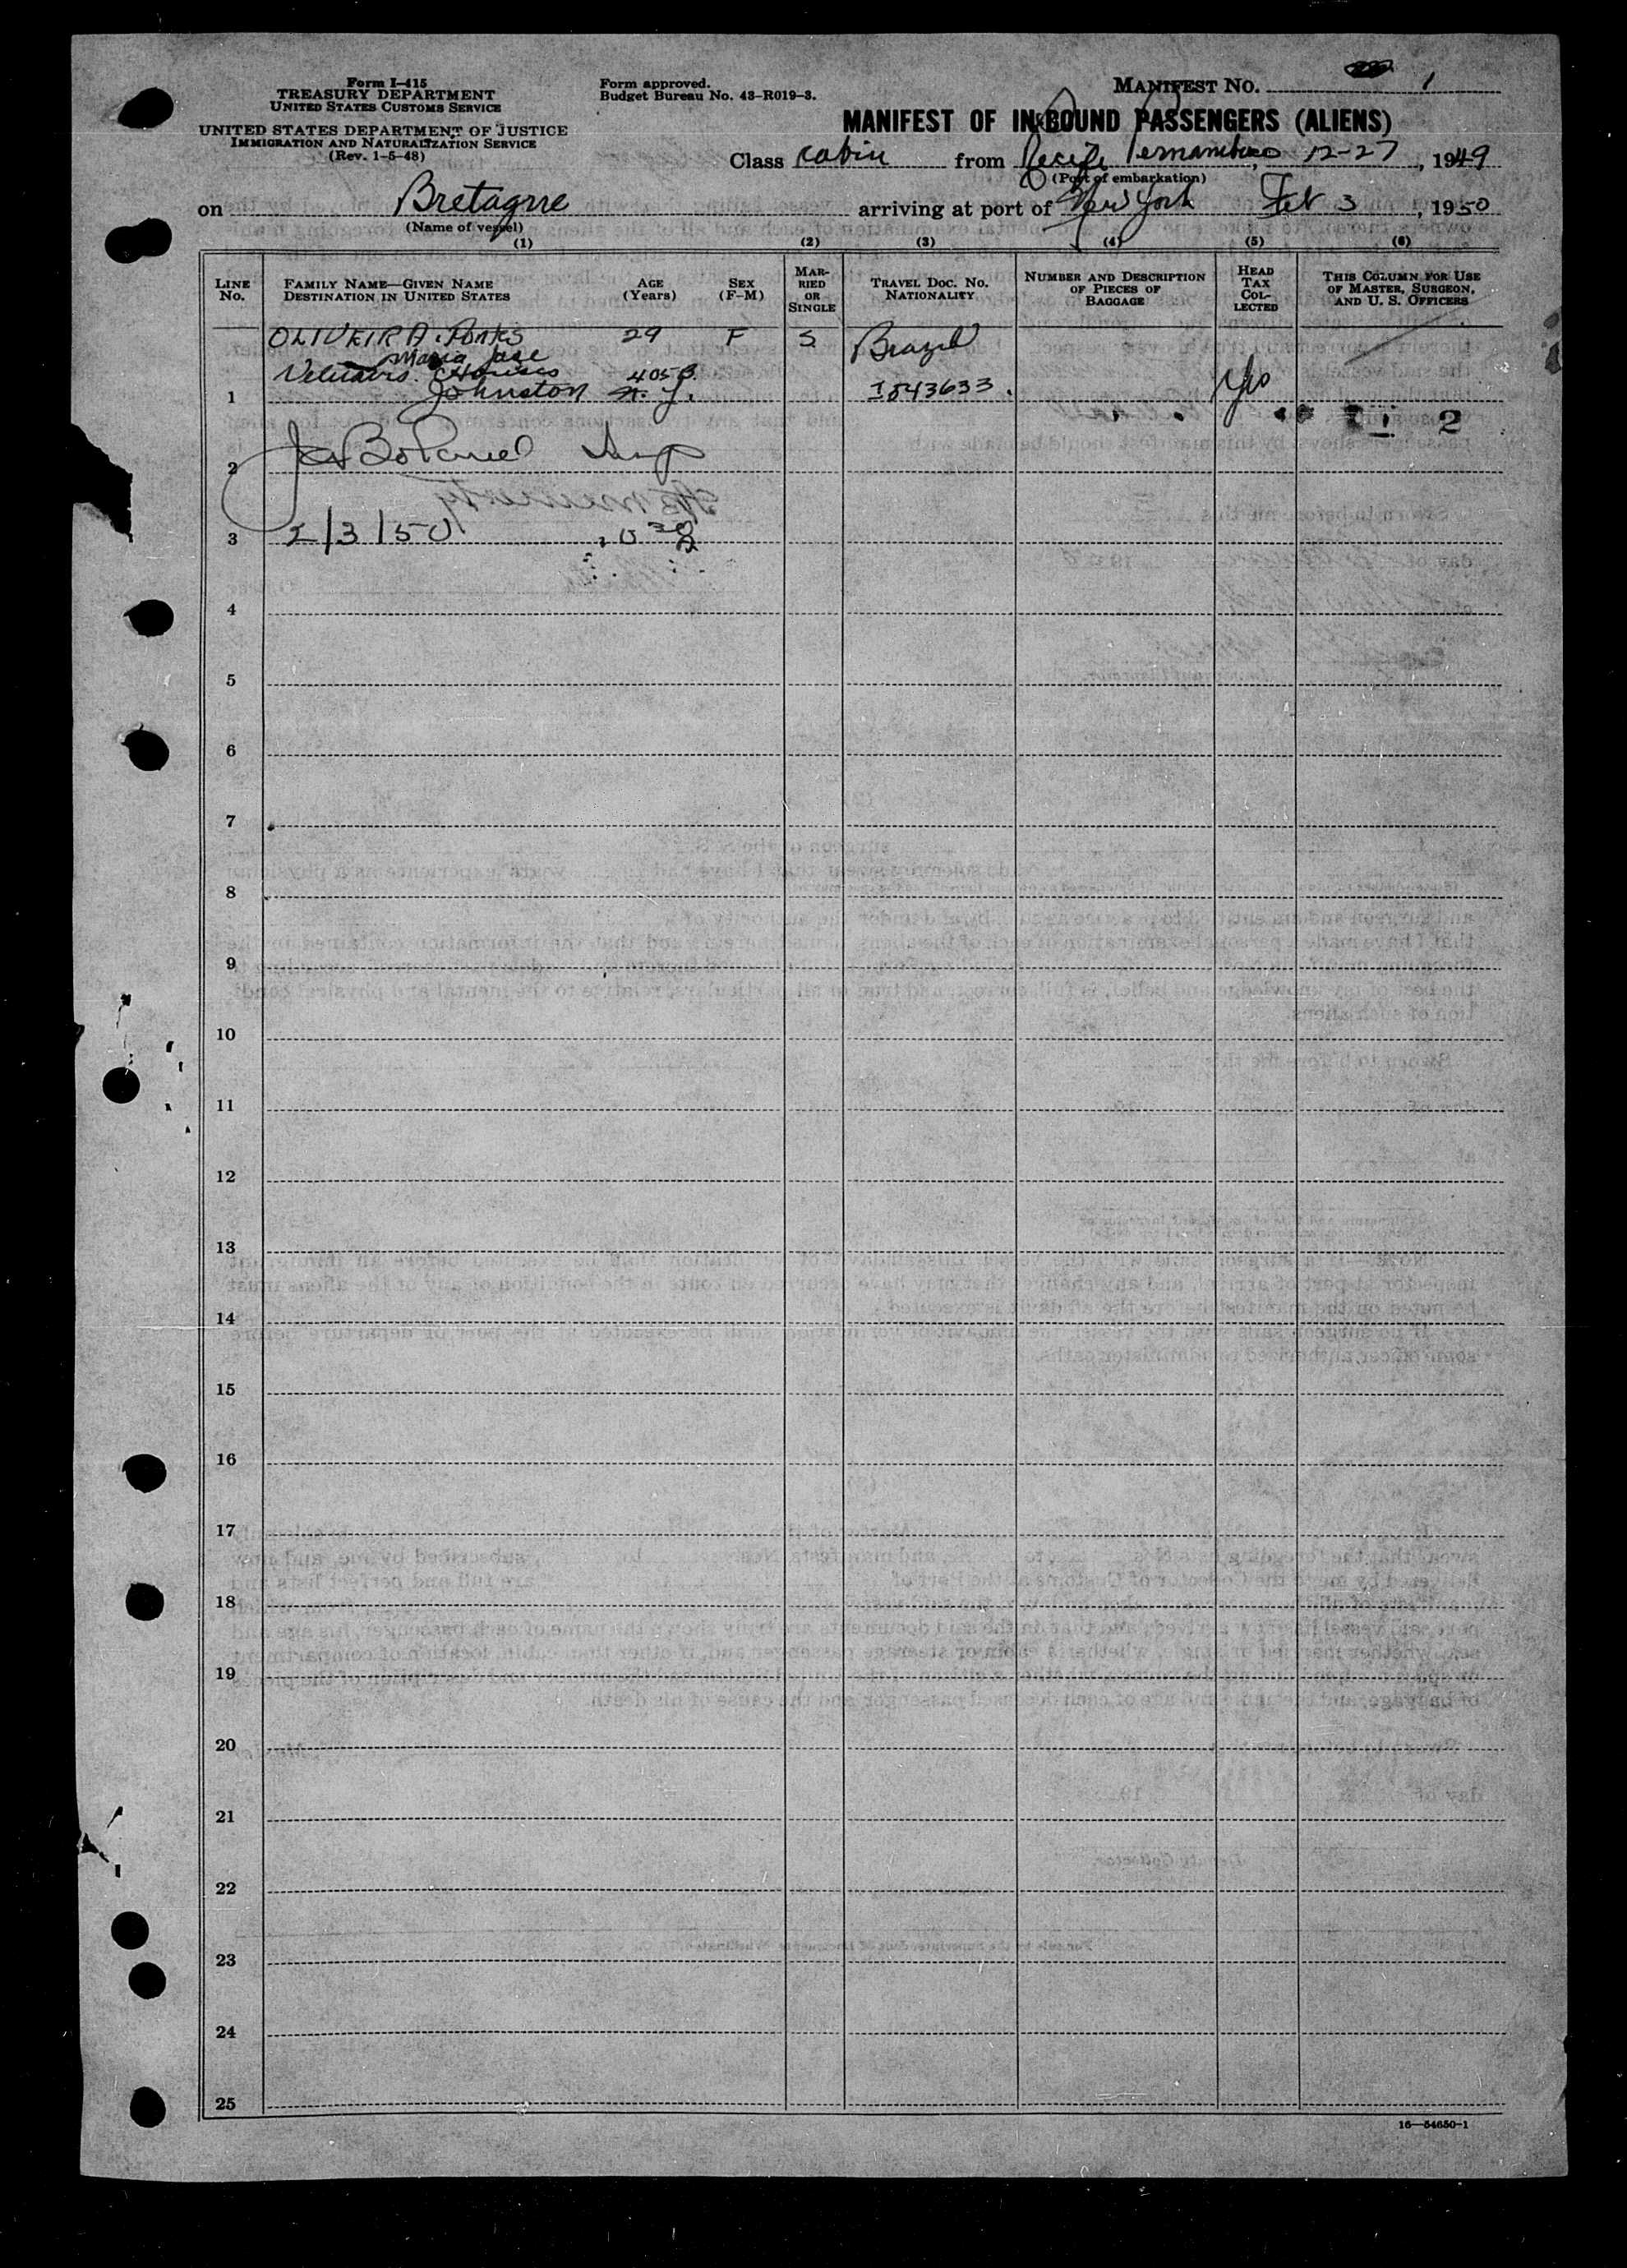 Form I-415
TREASURY DEPARTMENT
UNITED STATES CUSTOMS SERVICE
UNITED STATES DEPARTMENT OF JUSTICE
IMMIGRATION AND NATURALIZATION SERVICE
(Rev. 1-5-48)
Form approved.
Budget Bureau No. 43-R019-3.
MANIFEST NO. 1
MANIFEST OF IN-BOUND PASSENGERS (ALIENS)
Class Cabin from Recife Pernambuco, 12-27, 1949
(Port of embarkation)
on Bretagne arriving at port of New York Feb 3, 1950
(Name of vessel)
(1) (2) (3) (4) (5) (6)
LINE No.
FAMILY NAME—GIVEN NAME
DESTINATION IN UNITED STATES
AGE (Years)
SEX (F-M)
MARRIED OR SINGLE
TRAVEL DOC. NO. NATIONALITY
NUMBER AND DESCRIPTION OF PIECES OF BAGGAGE
HEAD TAX COLLECTED
THIS COLUMN FOR USE OF MASTER, SURGEON, AND U. S. OFFICERS
OLIVEIRA 29 F S Brazil
Maria Jose
405 B.
1 Johnston I543633. Yes
2
2
3 2/3/50
4
5
6
7
8
9
10
11
12
13
14
15
16
17
18
19
20
21
22
23
24
25
16—54650-1